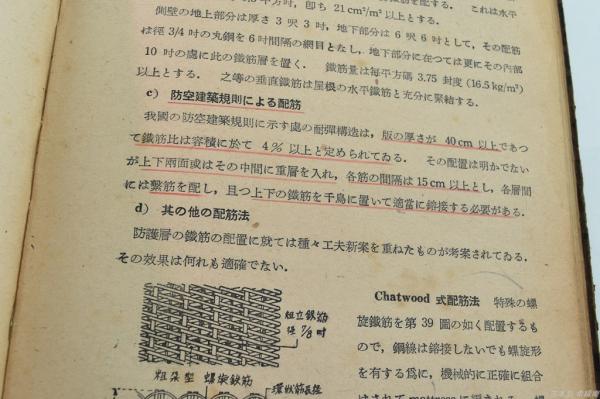 平方吋, 卽ち 21 cm²/m² 以上とする.
側壁の地上部分は厚さ 3 呎 3 吋, 地下部分は 6 呎 6 吋として, その配筋
は徑 3/4 吋の丸鋼を 6 吋間隔の網目となし, 地下部分に在つては更にその内部
10 吋の處に此の鐵筋層を置く. 鐵筋量は每平方碼 3.75 封度 (16.5 kg/m³)
以上とする. 之等の垂直鐵筋は屋根の水平鐵筋と充分に緊結する.
c) 防空建築規則による配筋
我國の防空建築規則に示す處の耐彈構造は, 版の厚さが 40 cm 以上であつ
て鐵筋比は容積に於て 4% 以上と定められてゐる. その配置は明かでない
が上下兩面或はその中間に重層を入れ, 各筋の間隔は 15 cm 以上とし, 各層間
には繫筋を配し, 且つ上下の鐵筋を千鳥に置いて適當に鎔接する必要がある.
d) 其の他の配筋法
防護層の鐵筋の配置に就ては種々工夫新案を重ねたものが考案されてゐる.
その效果は何れも適確でない.
組立鉄筋
徑 7/8 吋
粗朶型 螺旋鉄筋
環狀筋
Chatwood 式配筋法 特殊の螺
旋鐵筋を第 39 圖の如く配置するも
ので, 鋼線は鎔接しないでも螺旋形
を有する爲に, 機械的に正確に組合